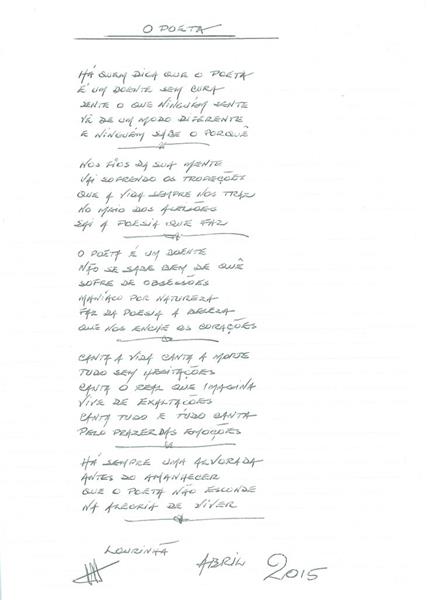 O POETA
HÁ QUEM DIGA QUE O POETA
É UM DOENTE SEM CURA
SENTE O QUE NINGUÉM SENTE
VÊ DE UM MODO DIFERENTE
E NINGUÉM SABE O PORQUÊ
NOS FIOS DA SUA MENTE
VAI SOFRENDO OS TROPEÇÕES
QUE A VIDA SEMPRE NOS TRAZ
NO MEIO DOS ALEIJÕES
SAI A POESIA QUE FAZ
O POETA É UM DOENTE
NÃO SE SABE BEM DE QUÊ
SOFRE DE OBSESSÕES
MANÍACO POR NATUREZA
FAZ DA POESIA A BELEZA
QUE NOS ENCHE OS CORAÇÕES
CANTA A VIDA CANTA A MORTE
TUDO SEM HESITAÇÕES
CANTA O REAL QUE IMAGINA
VIVE DE EXALTAÇÕES
CANTA TUDO E TUDO CANTA
PELO PRAZER DAS EMOÇÕES
HÁ SEMPRE UMA ALVORADA
ANTES DO AMANHECER
QUE O POETA NÃO ESCONDE
NA ALEGRIA DE VIVER
LOURINHÃ
ABRIL 2015